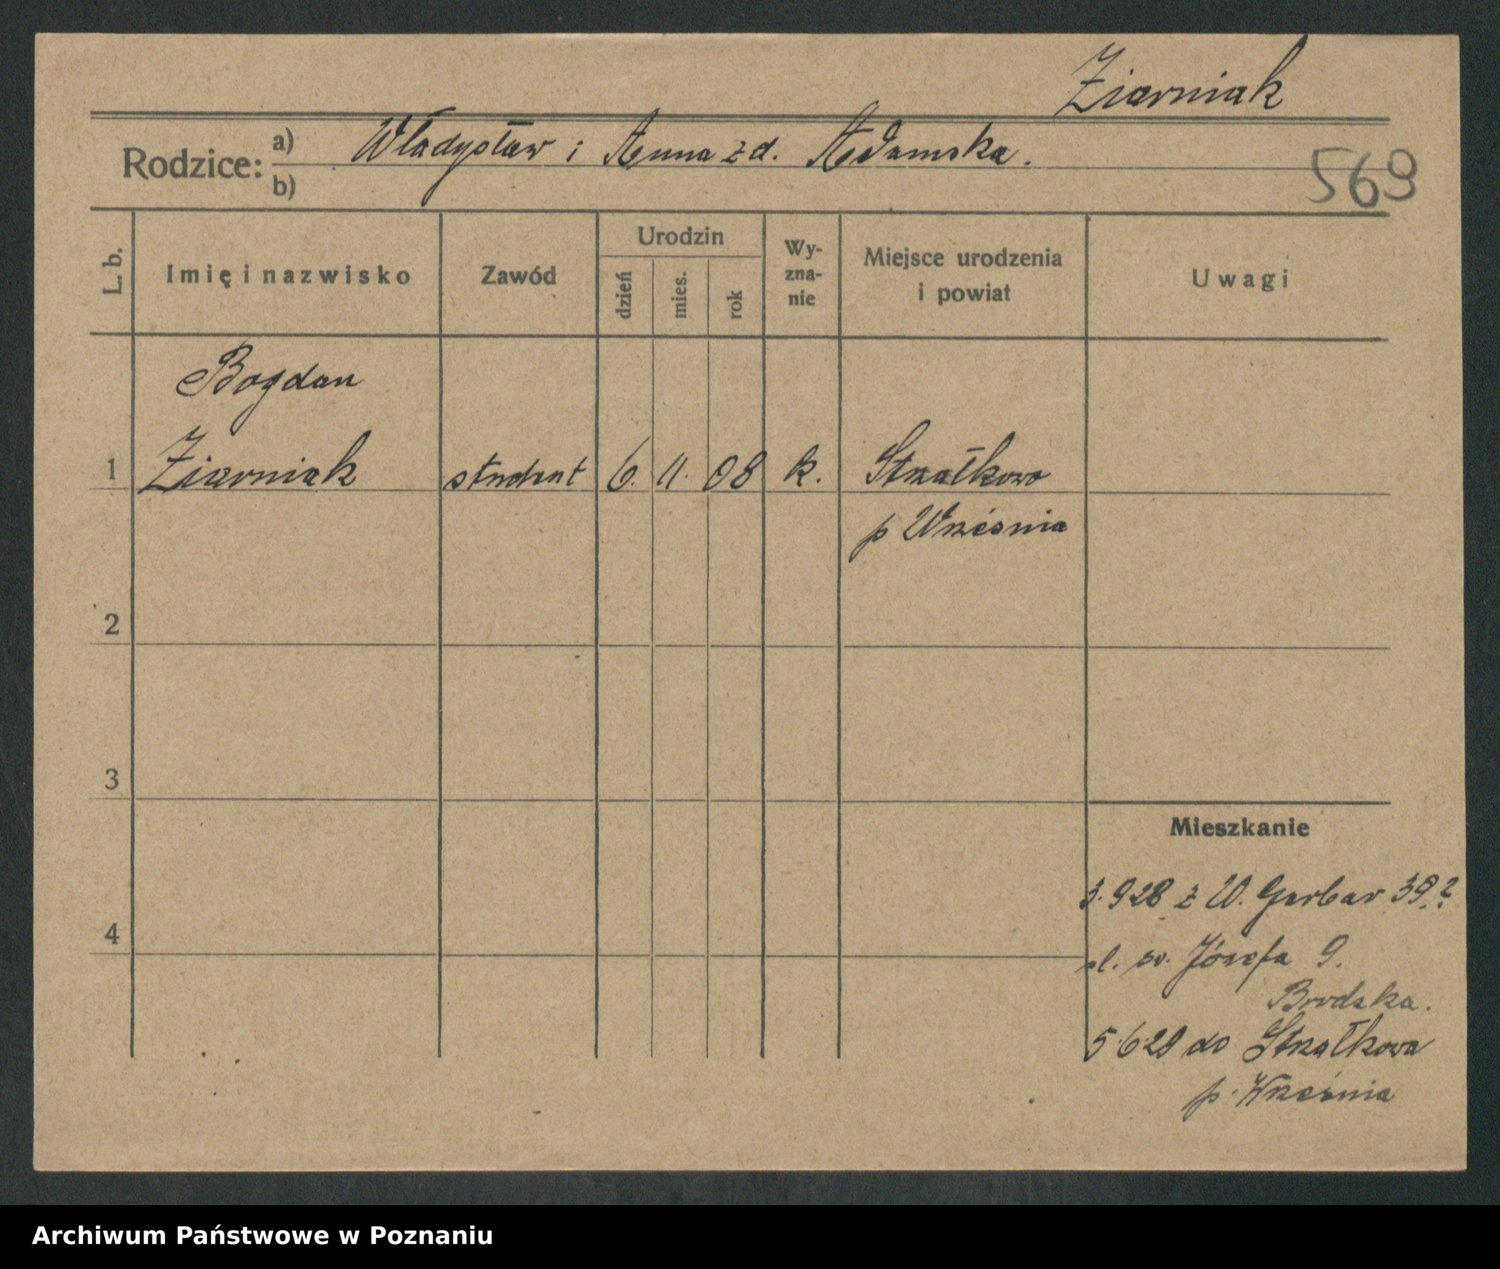 Ziarniak
Rodzice: a) Władysław i Anna z d. Adamska.
b)
569
L. b.
Imię i nazwisko
Zawód
Urodzin
dzień
mies.
rok
Wy-
zna-
nie
Miejsce urodzenia
i powiat
Uwagi
Bogdan
1 Ziarniak student 6. 11. 08 k. Strzałkowo
p Września
2
3
Mieszkanie
4
3. 928 z W. Garbar 39.?
pl. św. Józefa 9.
Brodzka.
5 629 do Strzałkowa
p. Września
Archiwum Państwowe w Poznaniu